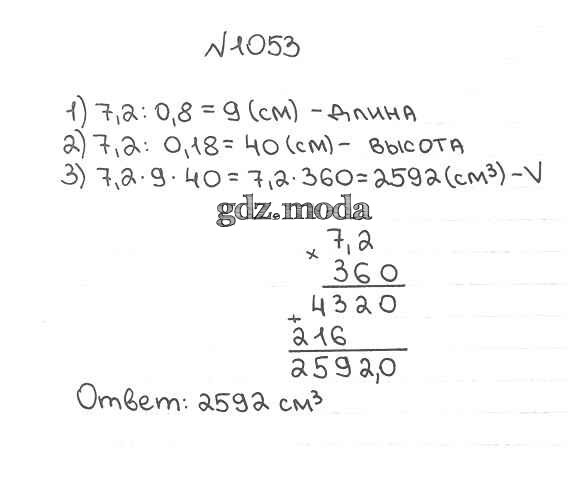 №1053
1) 7,2 : 0,8 = 9 (см) - длина
2) 7,2 : 0,18 = 40 (см) - высота
3) 7,2 · 9 · 40 = 7,2 · 360 = 2592 (см³) - V
gdz.moda
7,2
× 360
4320
+ 216
2592,0
Ответ: 2592 см³